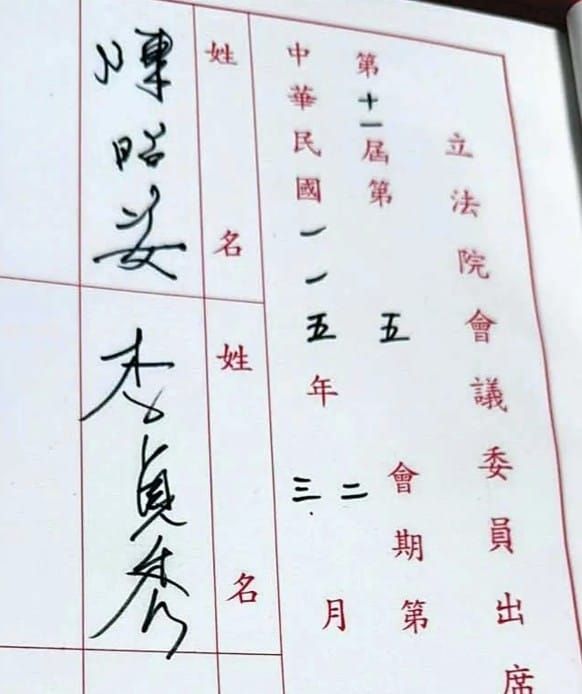 立法院會議委員出席
第十一屆第五會期第
中華民國一一五年三二月
姓名
陳昭姿
姓名
李貞秀